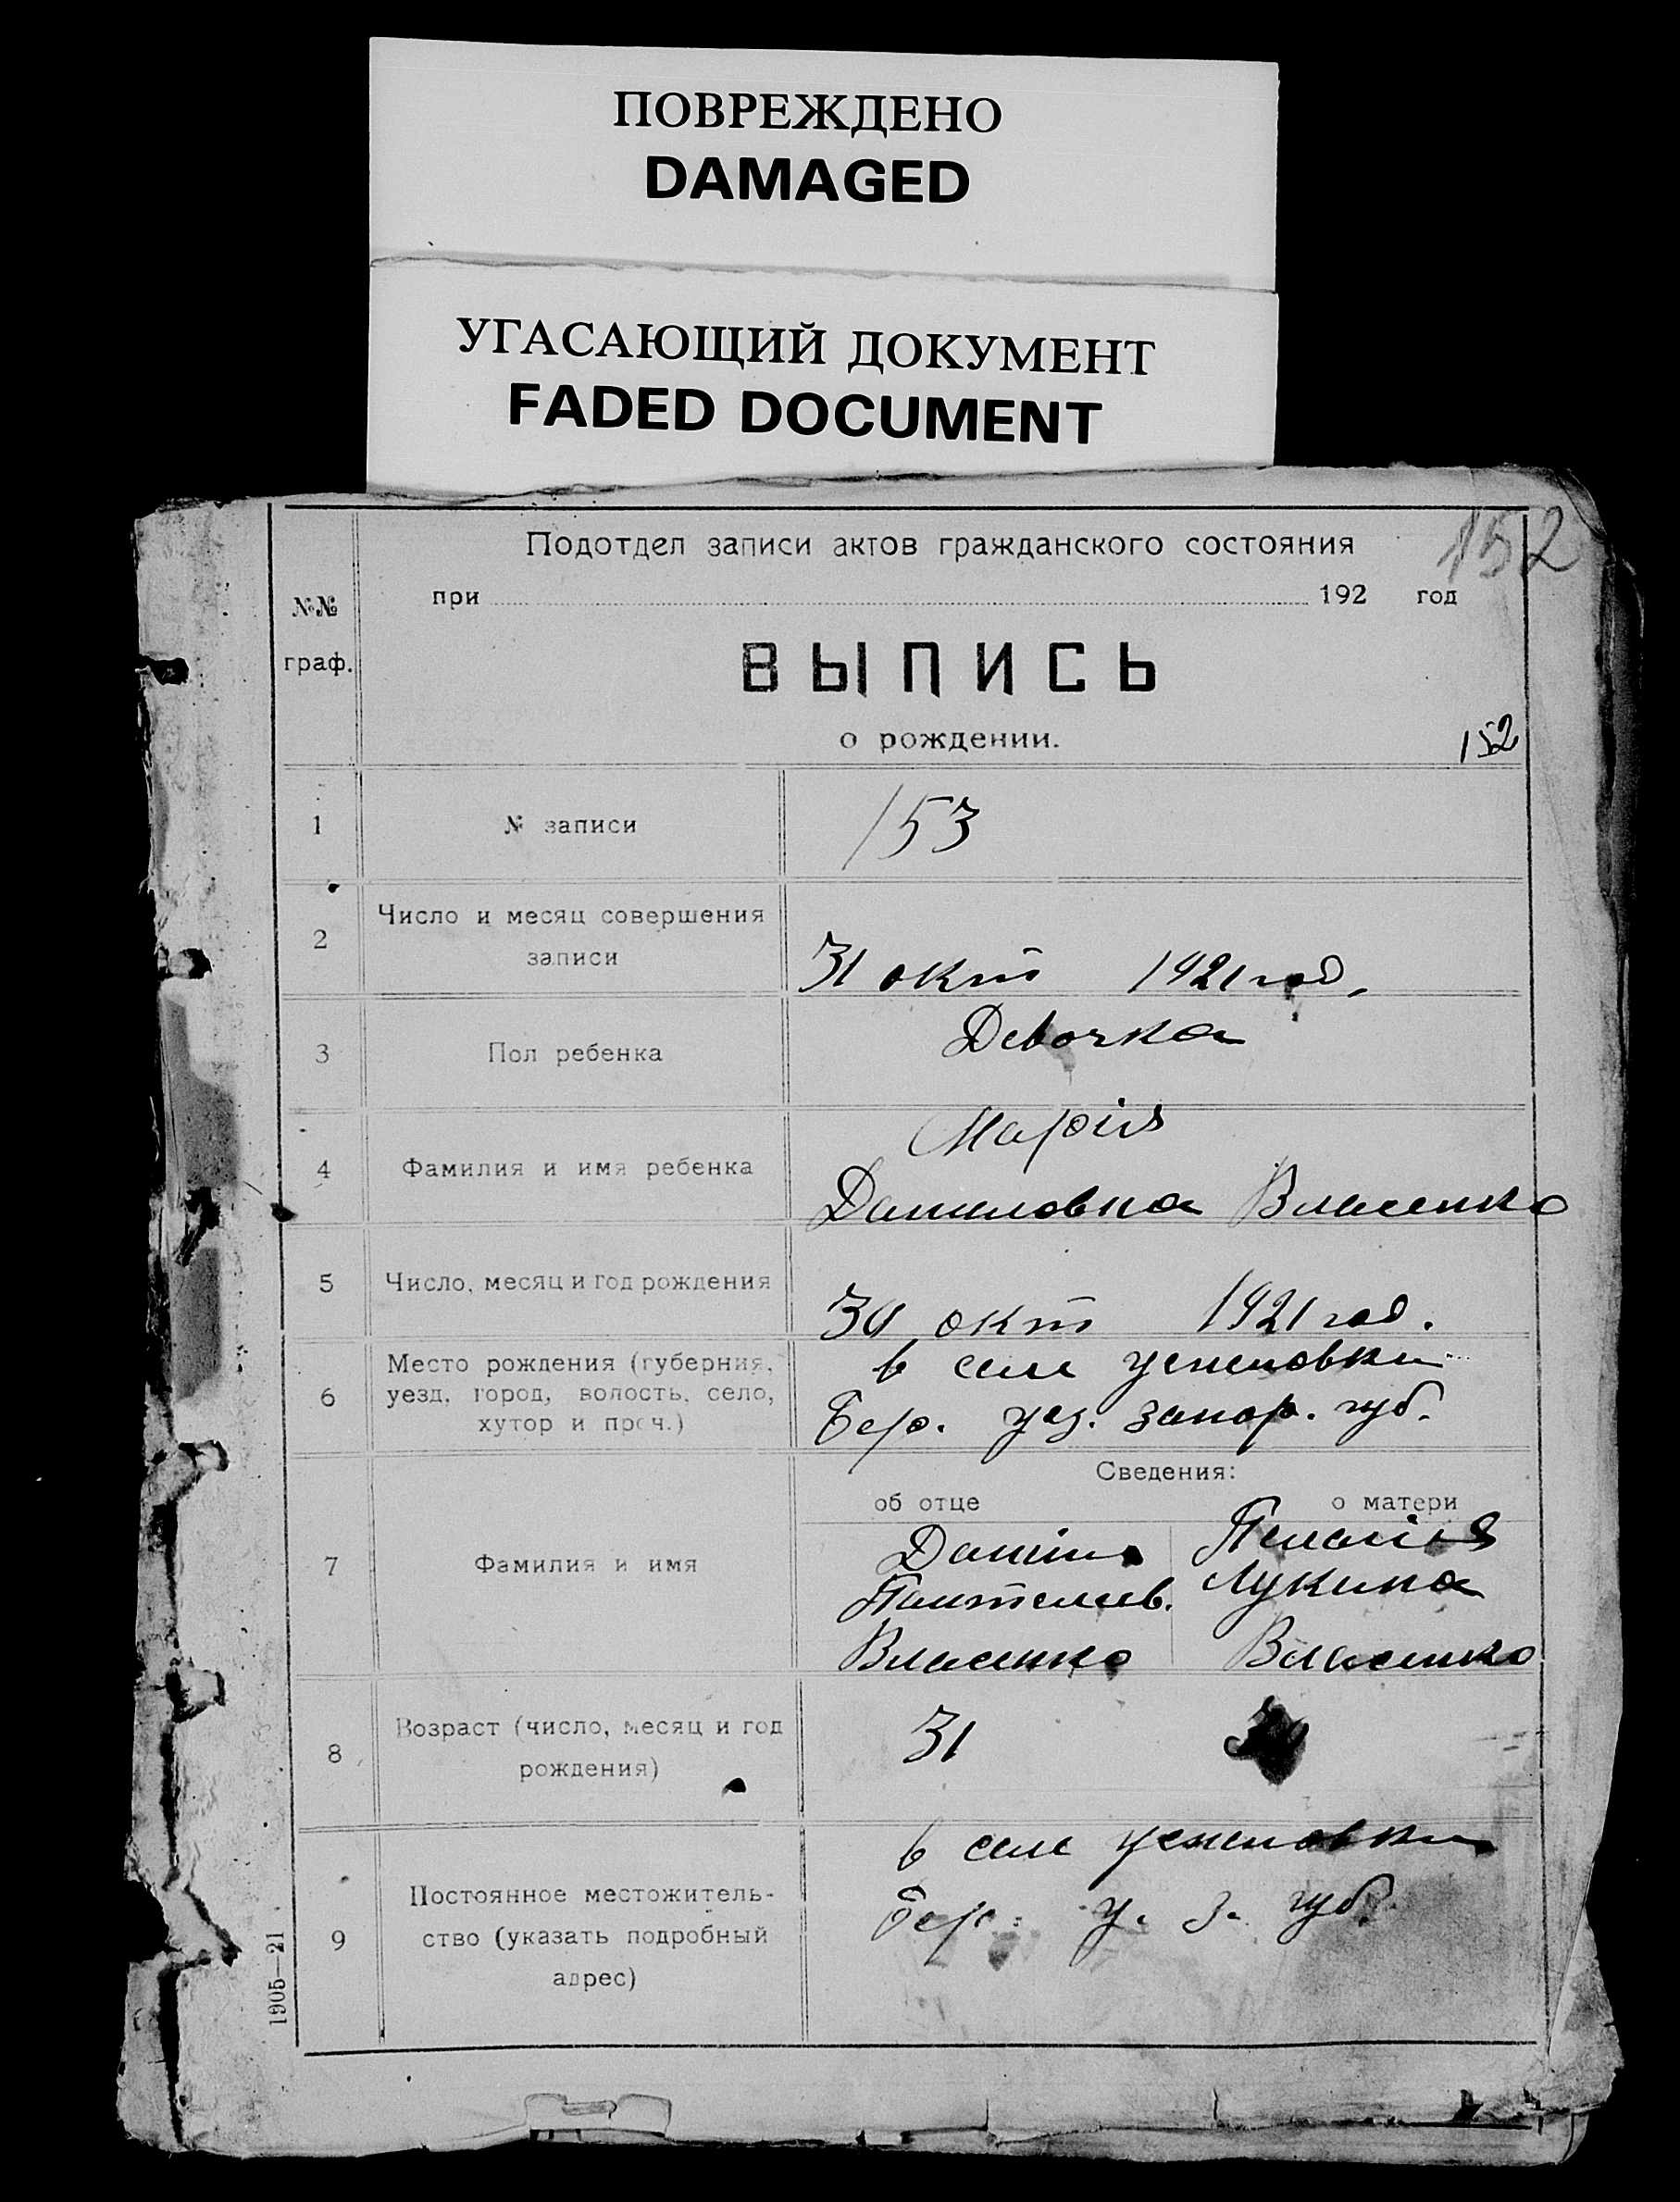 ПОВРЕЖДЕНО
DAMAGED
УГАСАЮЩИЙ ДОКУМЕНТ
FADED DOCUMENT
152
Подотдел записи актов гражданского состояния
№№
граф.
при 192 год
ВЫПИСЬ
о рождении.
152
1
№ записи
153
2
Число и месяц совершения
записи
31 окт 1921 год.
3
Пол ребенка
Девочка
4
Фамилия и имя ребенка
Марія
Даниловна Власенко
5
Число, месяц и год рождения
30 окт 1921 год.
6
Место рождения (губерния,
уезд, город, волость, село,
хутор и проч.)
в селе успеновки
Бер. уез. запор. губ.
Сведения:
об отце
о матери
7
Фамилия и имя
Данiил
Пантелеев.
Власенко
Пелагiя
Лукина
Власенко
8
Возраст (число, месяц и год
рождения)
31
9
Постоянное местожитель-
ство (указать подробный
адрес)
в селе успеновки
Бер. у. З. губ.
1905—21